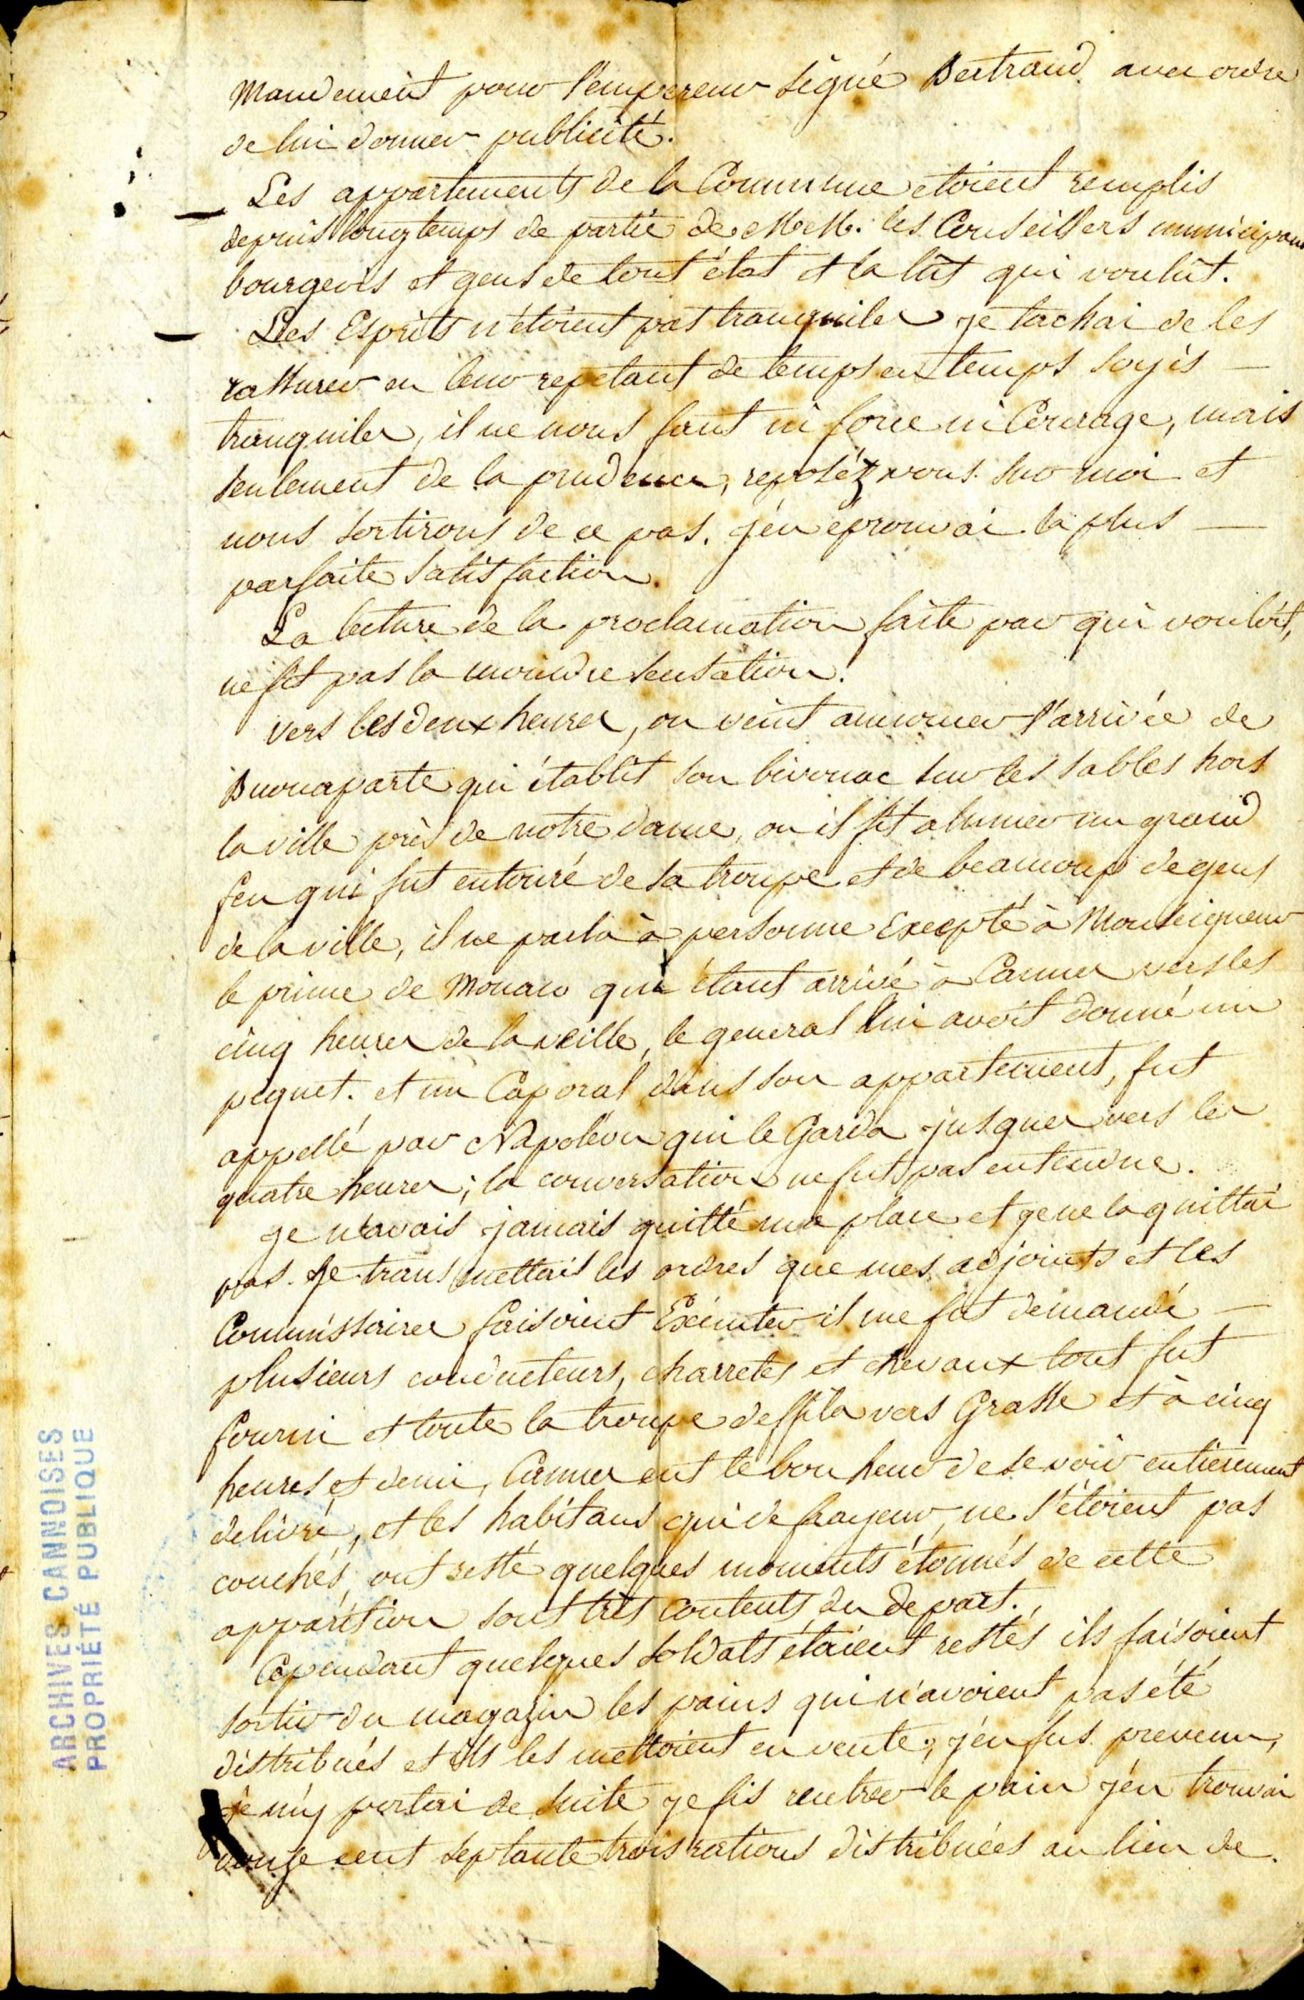 Mandement pour l'empereur signé Bertrand. avec ordre
de lui donner publicité.
Les appartements de la Commune etoient remplis
depuis longtemps de partie de M.M. les Conseillers municipaux
bourgeois et gens de tout état et la lût qui voulût.
Les Esprits n'étoient pas tranquiles je tachai de les
rassurer en leur repetant de temps en temps soyés
tranquiles, il ne nous faut ni force ni Courage, mais
seulement de la prudence, reposéz vous sur moi et
nous sortirons de ce pas. j'en éprouvai la plus
parfaite satisfaction.
La lecture de la proclamation faite par qui vouloit,
ne fit pas la moindre sensation.
vers les deux heures, on vint anoncer l'arrivée de
Buonaparte qui établit son bivouac sur les sables hors
la ville près de notre dame, ou il fit alumer un grand
feu qui fut entouré de sa troupe et de beaucoup de gens
de la ville, il ne parla à personne Excepté à Monseigneur
le prince de Monaco qui étant arrivé à Cannes vers les
cinq heures de la veille, le general lui avoit donné un
piquet. et un Caporal dans son appartement, fut
appellé par Napoléon qui le Garda jusques vers les
quatre heures; la conversation ne fut pas entendue.
je n'avais jamais quitté ma place et je ne la quittai
pas. Je transmettais les ordres que mes adjoints et les
Commissaires faisoient Exécuter il me fut demandé
plusieurs conducteurs, charretes et chevaux tout fut
fourni et toute la troupe deffila vers Grasse et à cinq
heures et demi, Cannes eut le bonheur de se voir entierement
delivré, et les habitans qui de frayeur, ne s'étoient pas
couchés, ont resté quelques moments étonnés de cette
apparition sont très contents du depart.
Cependant quelques soldats étaient restés ils faisoient
sortir du magazin les pains qui n'avoient pas été
distribués et ils les mettoient en vente; j'en fus prevenu,
je m'y portai de suite je fis rentrer le pain j'en trouvai
onze cent septante trois rations distribuées au lieu de
ARCHIVES CANNOISES
PROPRIÉTÉ PUBLIQUE